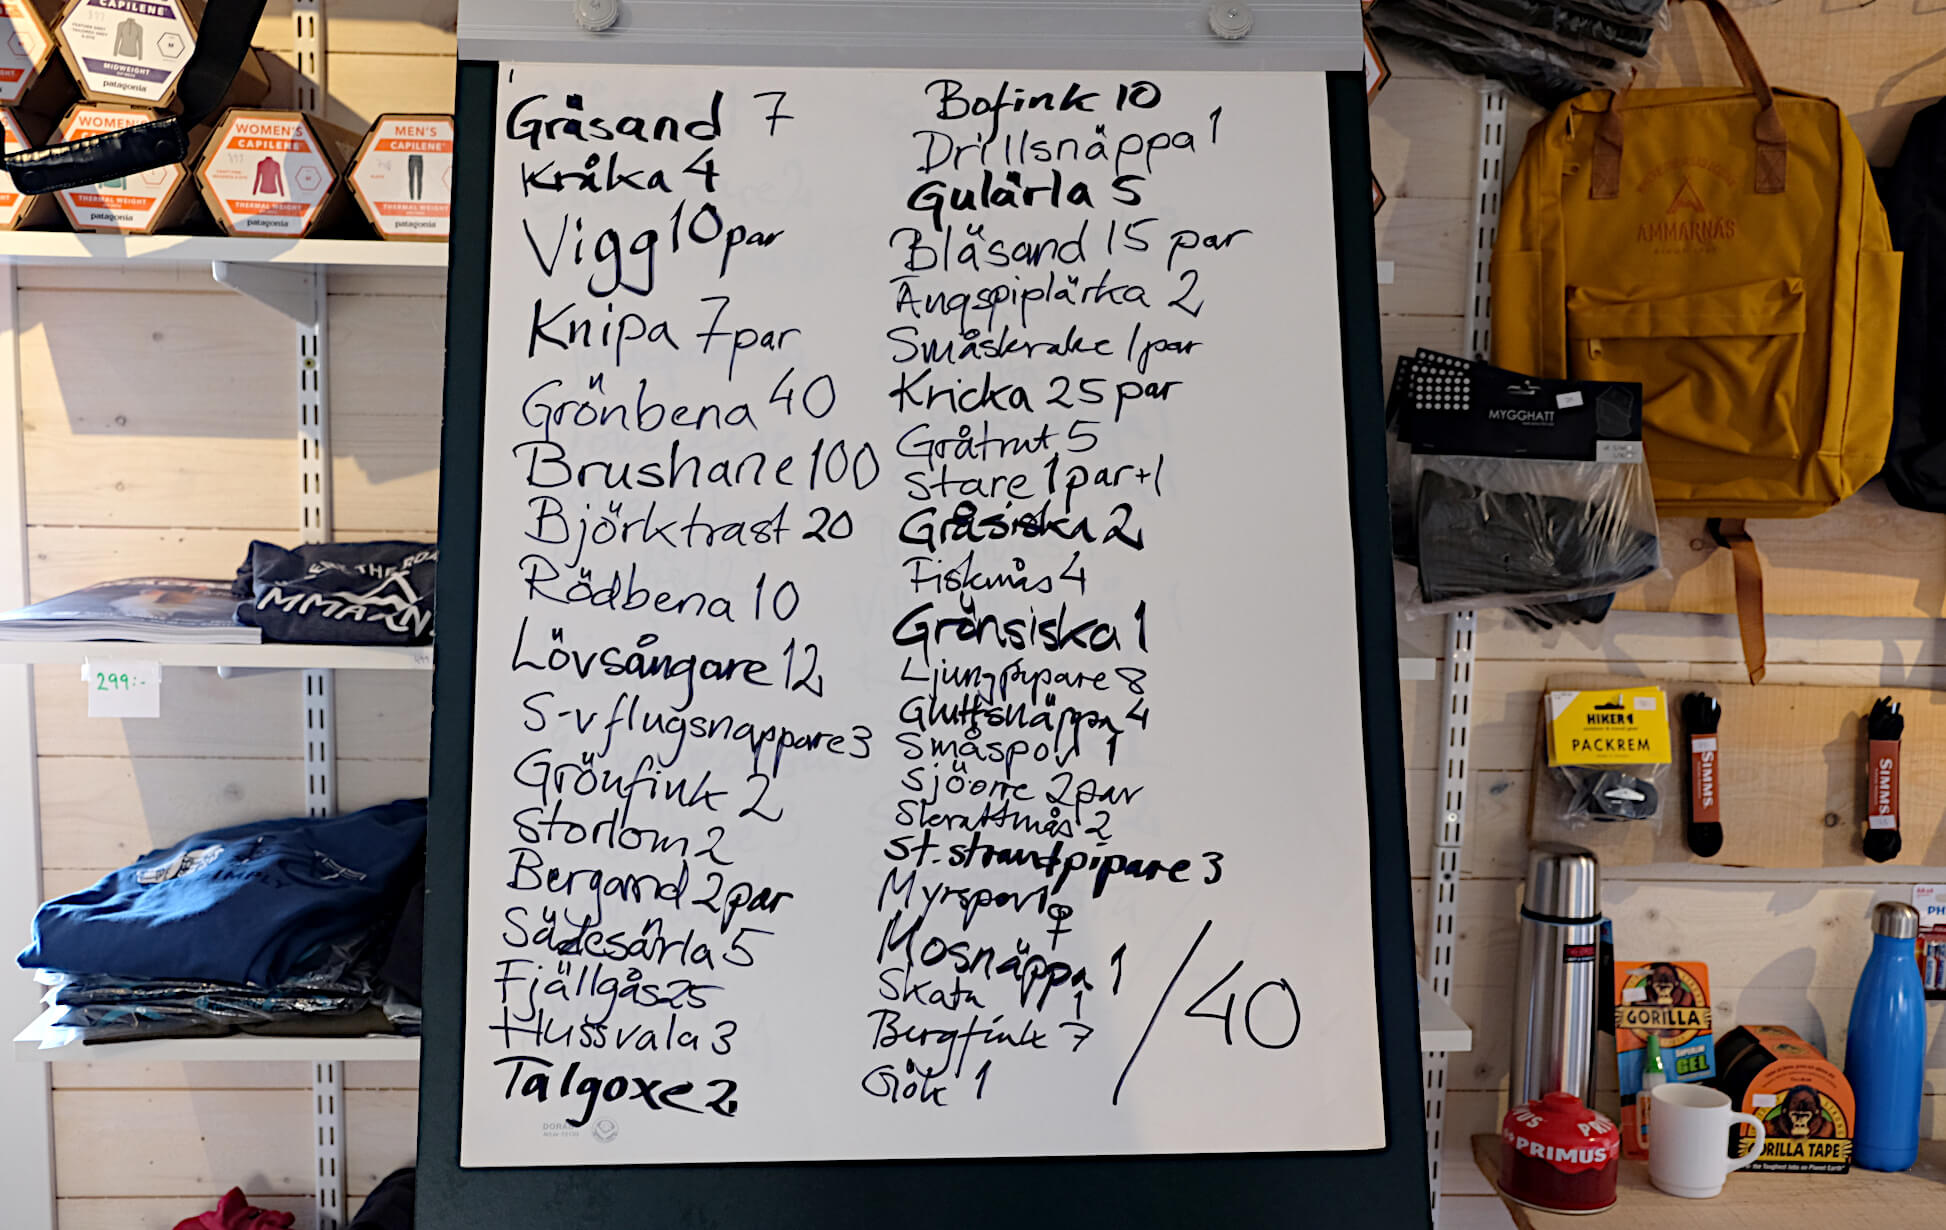 Gräsand 7
Kråka 4
Vigg 10 par
Knipa 7 par
Grönbena 40
Brushane 100
Björktrast 20
Rödbena 10
Lövsångare 12
S-v flugsnappare 3
Grönfink 2
Storlom 2
Bergand 2 par
Sädesärla 5
Fjällgås 25
Hussvala 3
Talgoxe 2
Bofink 10
Drillsnäppa 1
Gulärla 5
Bläsand 15 par
Ängspiplärka 2
Småskrake 1 par
Kricka 25 par
Gråtrut 5
Stare 1 par + 1
Gråsiska 2
Fiskmås 4
Grönsiska 1
Ljungpipare 8
Gluttsnäppa 4
Småspov 1
Sjöorre 2 par
Skrattmås 2
St. strandpipare 3
Myrspov 1 ♀
Mosnäppa 1
Skata 1
Bergfink 7
Gök 1
/40
DORAS
CAPILENE
MIDWEIGHT
patagonia
WOMEN'S
CAPILENE
THERMAL WEIGHT
patagonia
MEN'S
CAPILENE
THERMAL WEIGHT
patagonia
299:-
AMMARNÄS
MYGGHATT
HIKER
PACKREM
SIMMS
SIMMS
GORILLA
GEL
PRIMUS
GORILLA TAPE